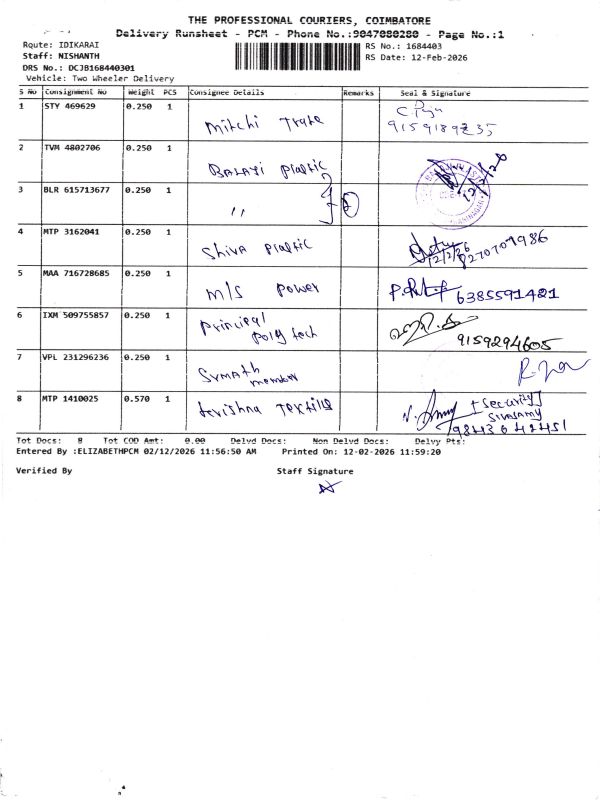 THE PROFESSIONAL COURIERS, COIMBATORE
Delivery Runsheet - PCM - Phone No.:9047080280 - Page No.:1
Route: IDIKARAI
RS No.: 1684403
Staff: NISHANTH
RS Date: 12-Feb-2026
DRS No.: DCJB168440301
Vehicle: Two Wheeler Delivery
S No Consignment No Weight PCS Consignee Details Remarks Seal & Signature
1 STY 469629 0.250 1
Mitchi Trate
9159189235
2 TVM 4802706 0.250 1
BALAYI plastic
12/2/26
3 BLR 615713677 0.250 1
"
2
4 MTP 3162041 0.250 1
Shiva plastic
12/2/26
5 MAA 716728685 0.250 1
M/S power
6385591421
6 IXM 509755857 0.250 1
principal
poly tech
9159294605
7 VPL 231296236 0.250 1
member
8 MTP 1410025 0.570 1
krishna Textills
[Security]
Sivasamy
9843642451
Tot Docs: 8 Tot COD Amt: 0.00 Delvd Docs: Non Delvd Docs: Delvy Pts:
Entered By :ELIZABETHPCM 02/12/2026 11:56:50 AM Printed On: 12-02-2026 11:59:20
Verified By Staff Signature